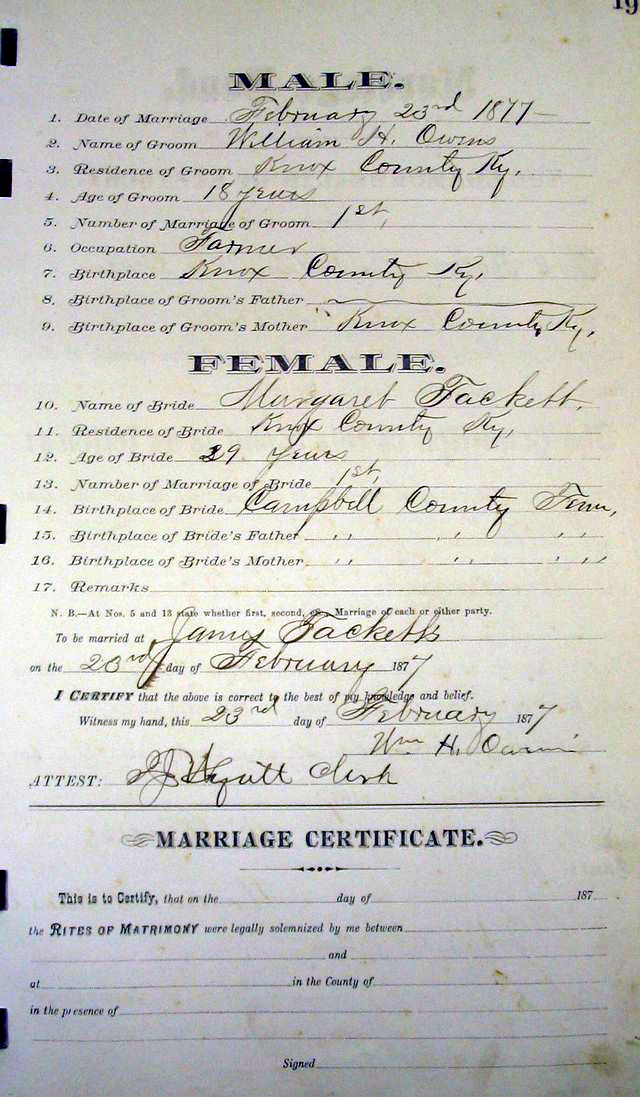 19
MALE.
1. Date of Marriage February 23rd 1877
2. Name of Groom William H. Owens
3. Residence of Groom Knox County Ky.
4. Age of Groom 18 years
5. Number of Marriage of Groom 1st,
6. Occupation Farmer
7. Birthplace Knox County Ky.
8. Birthplace of Groom's Father
9. Birthplace of Groom's Mother Knox County, Ky.
FEMALE.
10. Name of Bride Margaret Tackett.
11. Residence of Bride Knox County Ky.
12. Age of Bride 29 years
13. Number of Marriage of Bride 1st,
14. Birthplace of Bride Campbell County Tenn,
15. Birthplace of Bride's Father " " " "
16. Birthplace of Bride's Mother " " " "
17. Remarks
N. B.—At Nos. 5 and 13 state whether first, second, &c., Marriage of each or either party.
To be married at James Tacketts
on the 23rd day of February 1877
I CERTIFY that the above is correct to the best of my knowledge and belief.
Witness my hand, this 23rd day of February 1877
Wm H.
ATTEST: Clerk
MARRIAGE CERTIFICATE.
This is to Certify, that on the day of 187
the RITES OF MATRIMONY were legally solemnized by me between
and
at in the County of
in the presence of
Signed